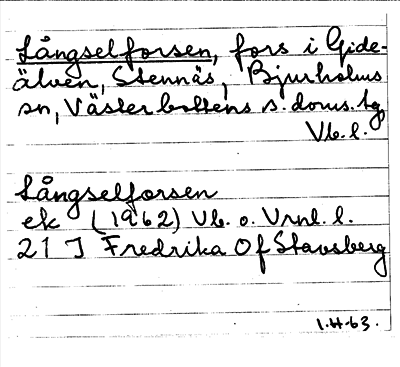 Långselforsen, fors i Gide-
älven, Stennäs, Bjurholms
sn, Västerbottens s. doms. tg
Vb. l.
Långselforsen
ek (1962) Vb. o. Vrnl. l.
21 J Fredrika Of Stavsberg
1.H-63.